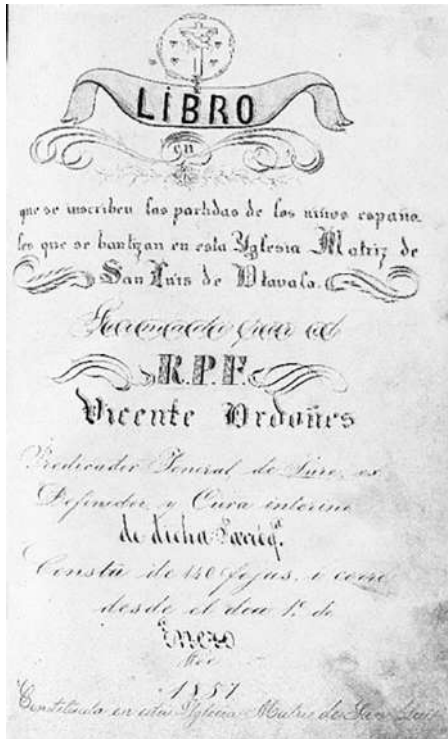 LIBRO
en
que se inscriben las partidas de los niños españo-
les que se bautizan en esta Yglesia Matriz de
San Luis de Otavalo.
por el
R.P.F.
Vicente Ordoñes
Predicador General de Jure, ex
Definidor, y Cura interino
de dicha Parrōq.ª
Consta de 140 fojas, i corre
desde el dia 1º de
Enero
de
1857
Constituida en esta Yglesia Matriz de San Luis